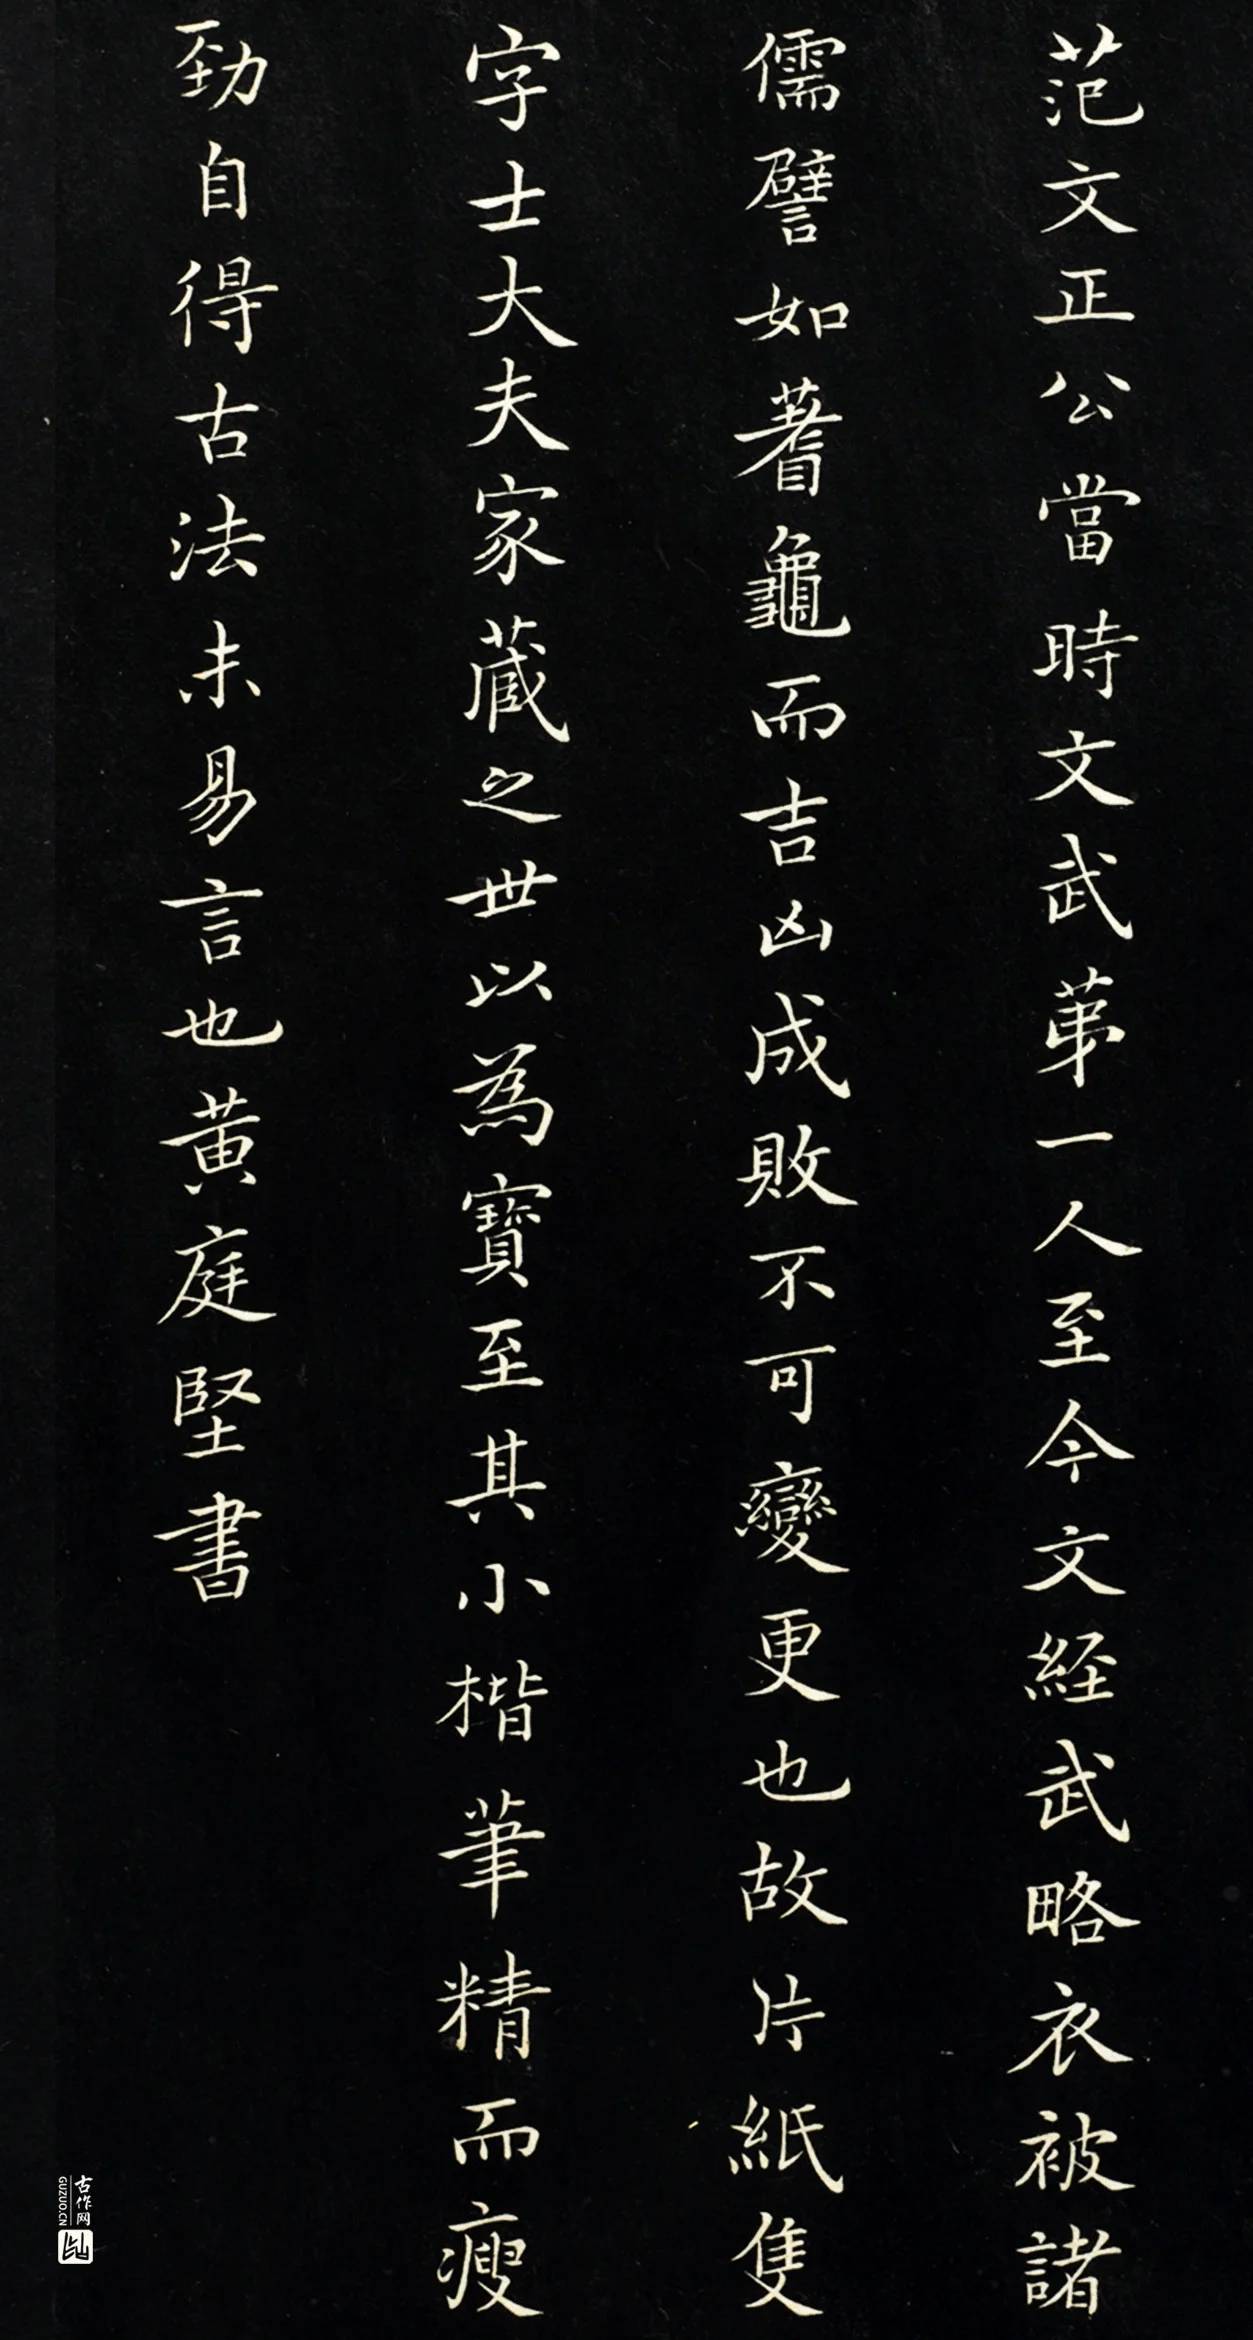 范文正公當時文武第一人至今文経武略衣被諸
儒譬如蓍龜而吉凶成敗不可變更也故片紙隻
字士大夫家蔵之世以為寳至其小楷筆精而瘦
勁自得古法未易言也黄庭堅書
古作网
GUZUO.CN